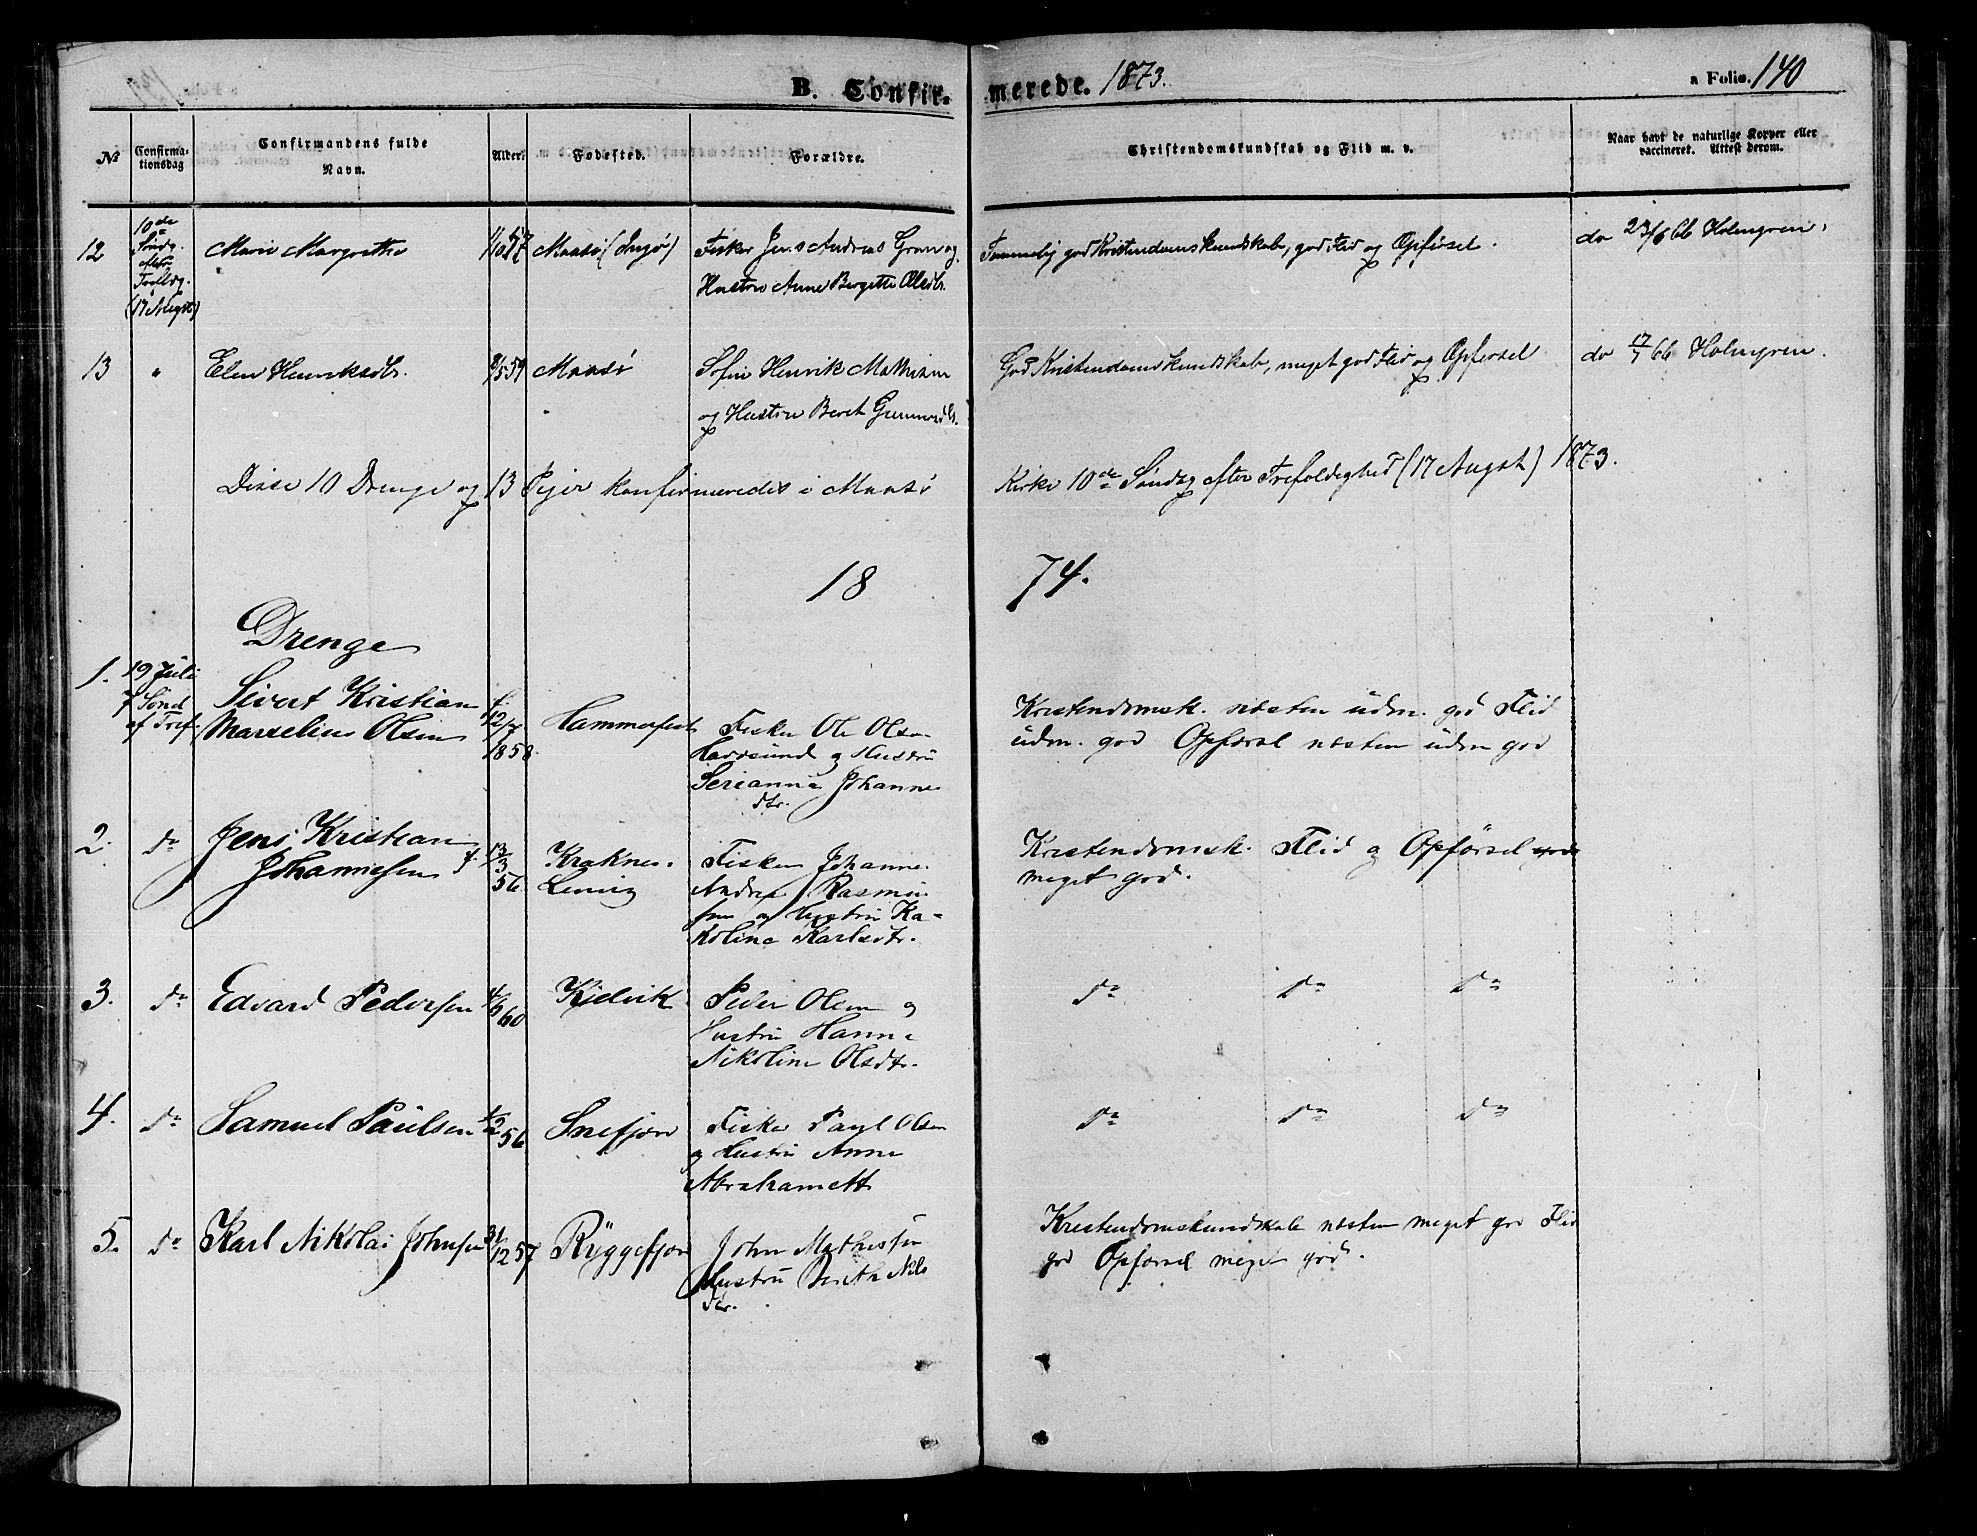 B. Confirmerede. 1873.
a Folio. 140
№
Confirmationsdag
Confirmandens fulde Navn.
Alder.
Fødested.
Forældre.
Christendomskundskab og Flid m. v.
Naar havt de naturlige Kopper eller vaccineret. Attest derom.
12
10de Søndg. Trefldg. (17 August)
Marie Margrethe
57
Maasø (Ingø)
Fisker Jens Andreas Gran og
Hustru Anne Bergette Olsdtr.
Temmelig god Kristendomskundskab, god Flid og Opførsel.
do 23/6 66 Holmgren.
13
"
Elen Henriksdtr.
9/5 59
Maasø
Sofin Henrik Mathisen
og Hustru Beret Gunnersdtr.
God Kristendomskundskab, meget god Flid og Opførsel
do 17/7 66 Holmgren.
Disse 10 Drenge og 13 Piger konfirmeredes i Maasø Kirke 10de Søndag efter Trefoldighed (17 August) 1873.
18 74.
Drenge
1.
19 Juli
7 Sønd
af Tref.
Sivert Kristian
Marselius Olsen
f. 12/7 1858
Hammerfest
Fisker Ole Olsen
Havøsund og Hustru
Serianna Johannes
dtr.
Kristendomsk. næsten udm. god Flid
udm. god Opførsel næsten udm god
2.
do
Jens Kristian
Johannesen
f. 13/3 56
Kraknes.
Fisker Johannes
Andreas Rasmus
sen og Hustru Ka-
roline Karlsdtr.
Kristendomsk. Flid og Opførsel
meget god.
3.
do
Edvard Pedersen
60
Kjelvik
Peder Olsen og
Hustru Hanna
Nikoline Olsdtr.
do do do
4.
do
Samuel Paulsen
1/2 56
Snefjord
Fisker Paul Olsen
og Hustru Anna
Abrahamsdtr
do do do
5.
do
Karl Nikolai Johnsen
31/12 57
Ryggefjord
John Mathissen
Hustru Berthe Nils
dtr.
Kristendomskundskab næsten meget god Flid
god Opførsel meget god.